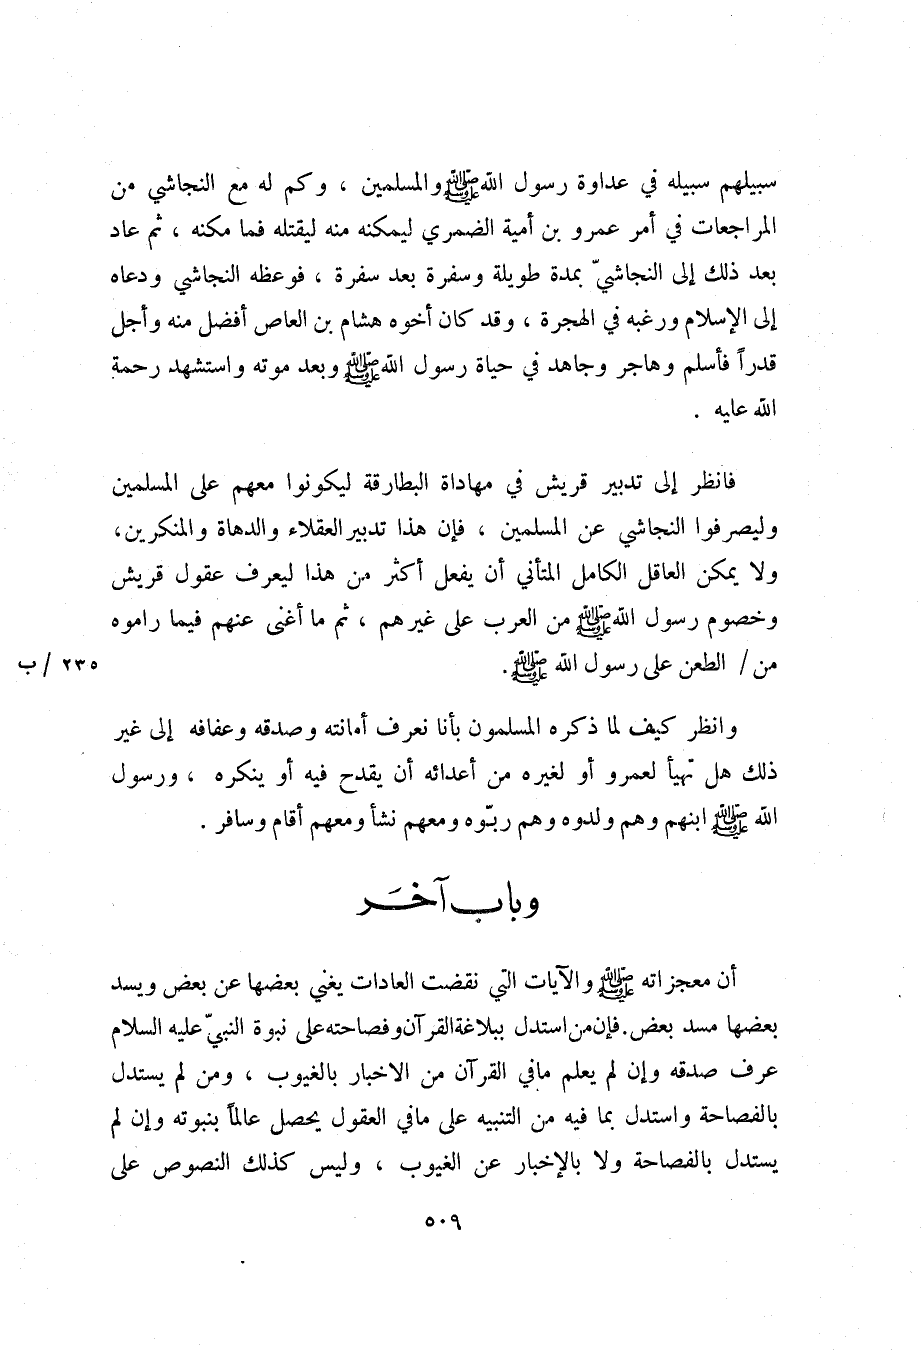 سبيلهم سبيله في عداوة رسول الله ﷺ والمسلمين ، وكم له مع النجاشي من
المراجعات في أمر عمرو بن أمية الضمري ليمكنه منه ليقتله فما مكنه ، ثم عاد
بعد ذلك إلى النجاشيّ بمدة طويلة وسفرة بعد سفرة ، فوعظه النجاشي ودعاه
إلى الإسلام ورغبه في الهجرة ، وقد كان أخوه هشام بن العاص أفضل منه وأجل
قدراً فأسلم وهاجر وجاهد في حياة رسول الله ﷺ وبعد موته واستشهد رحمة
الله عليه .
فانظر إلى تدبير قريش في مهاداة البطارقة ليكونوا معهم على المسلمين
وليصرفوا النجاشي عن المسلمين ، فإن هذا تدبير العقلاء والدهاة والمنكرين،
ولا يمكن العاقل الكامل المتأني أن يفعل أكثر من هذا ليعرف عقول قريش
وخصوم رسول الله ﷺ من العرب على غيرهم ، ثم ما أغنى عنهم فيما راموه
من / الطعن على رسول الله ﷺ .
٢٣٥ / ب
وانظر كيف لما ذكره المسلمون بأنا نعرف أمانته وصدقه وعفافه إلى غير
ذلك هل تهيأ لعمرو أو لغيره من أعدائه أن يقدح فيه أو ينكره ، ورسول
الله ﷺ ابنهم وهم ولدوه وهم ربّوه ومعهم نشأ ومعهم أقام وسافر .
وباب آخَر
أن معجزاته ﷺ والآيات التي نقضت العادات يغني بعضها عن بعض ويسد
بعضها مسد بعض. فإن من استدل ببلاغة القرآن وفصاحته على نبوة النبيّ عليه السلام
عرف صدقه وإن لم يعلم مافي القرآن من الاخبار بالغيوب ، ومن لم يستدل
بالفصاحة واستدل بما فيه من التنبيه على مافي العقول يحصل عالماً بنبوته وإن لم
يستدل بالفصاحة ولا بالإخبار عن الغيوب ، وليس كذلك النصوص على
٥٠٩